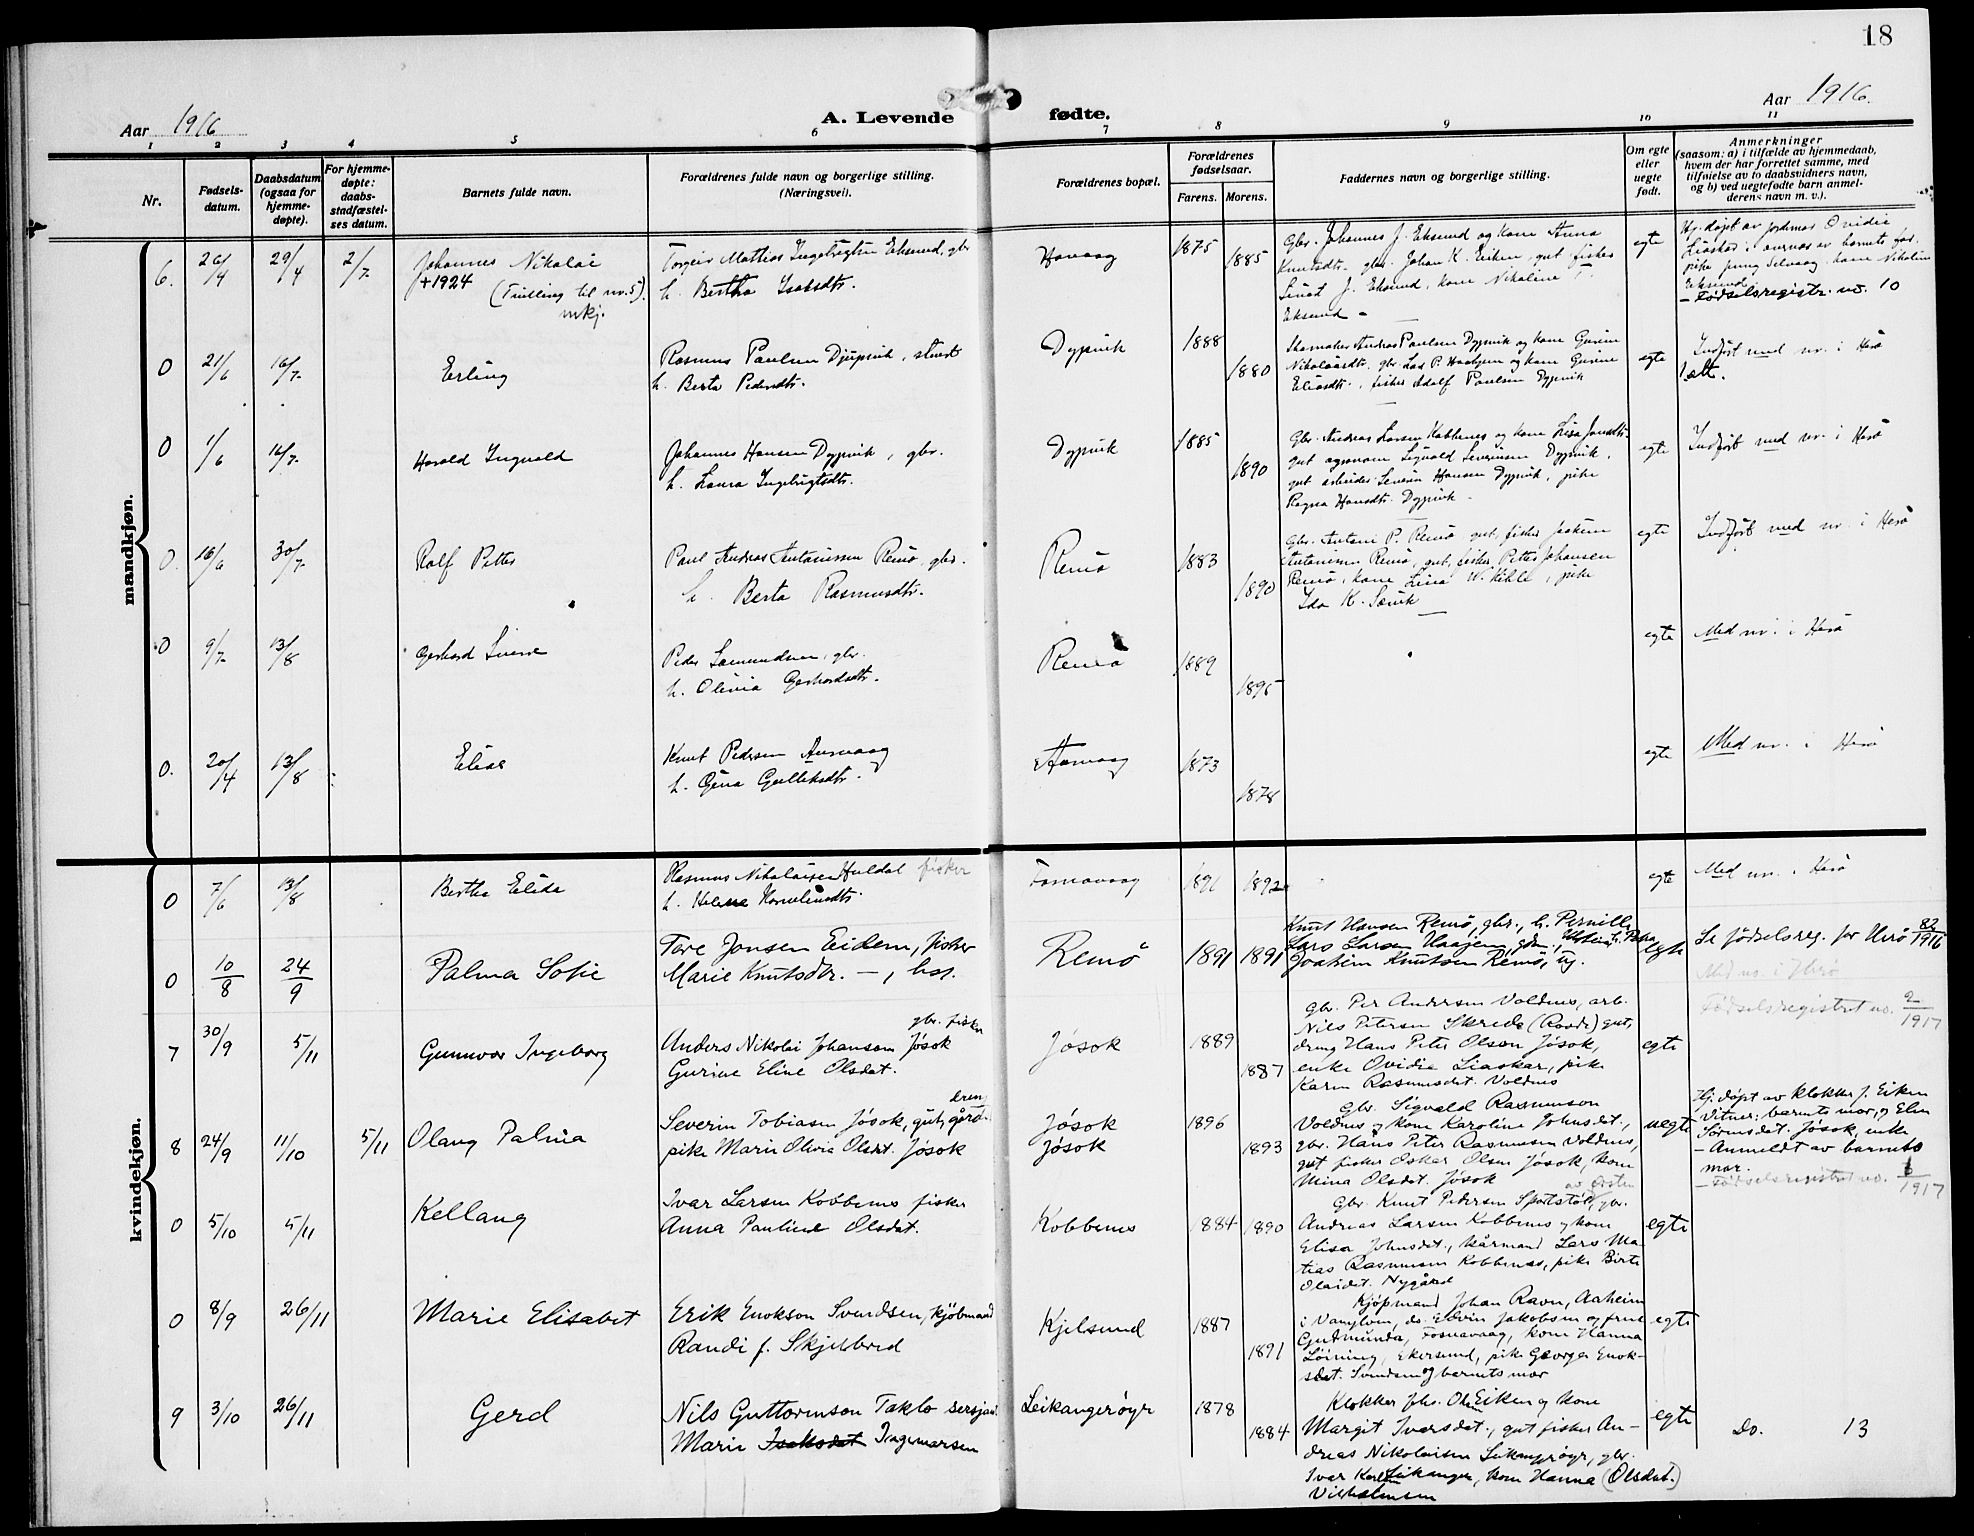 18
Aar 1916
A. Levende fødte.
Aar 1916.
1 2 3 4 5 6 7 8 9 10 11
Nr.
Fødsels-
datum.
Daabsdatum
(ogsaa for
hjemme-
døpte).
For hjemme-
døpte:
daabs-
stadfæstel-
ses datum.
Barnets fulde navn.
Forældrenes fulde navn og borgerlige stilling.
(Næringsvei).
Forældrenes bopæl.
Forældrenes
fødselsaar.
Farens. Morens.
Faddernes navn og borgerlige stilling.
Om egte
eller
uegte
født.
Anmerkninger
(saasom: a) i tilfælde av hjemmedaab,
hvem der har forrettet samme, med
tilføielse av to daabsvidners navn,
og b) ved uegtefødte barn anmel-
derens navn m. v.).
mandkjøn.
6. 26/4 29/4 2/7
Johannes Nikolai
+1924
(Tvilling til nr. 5).
Torgeir Mathias Ingebrigtsen Eksund, gbr
h. Bertha Isaksdtr.
1875
1885
Gbr. Johannes J. Eksund og kone Anna
Knutsdtr. gbr. Johan K. Eiken, gut fisker
J. Eksund, kone Nikoline
Eksund
egte
Hj. døpt av jordmor Ovidie
Eksund
- Fødselsregistr. nr. 10
0 21/6 16/7
Erling
Rasmus Paulsen Djupvik,
h. Berta Pedersdtr.
Dypvik
1888
1880
Skomaker Andreas Paulsen Dypvik og kone Gurine
Nikolaisdtr. gbr. og kone Gurine
Eliasdtr., fisker Adolf Paulsen Dypvik
egte
Indført med nr. i Herø
0 1/6 16/7
Harald Ingvald
Johannes Hansen Dypvik, gbr.
h. Laura Ingebrigtsdtr.
Dypvik
1885
1890
Gbr. Andreas Larsen Kobbenes og kone Lisa Jonsdtr.
gut agronom Sigvald Severinsen Dypvik,
gut arbeider Severin Hansen Dypvik, pike
Ragna Hansdtr. Dypvik
egte
Indført med nr. i Herø
0. 16/6 30/7
Rolf Petter
Paul Andreas Antonissen Remø, gbr.
h. Berta Rasmusdtr.
Remø
1883
1890
Gbr. Antoni P. Remø gut, fisker Joakim
Antonissen Remø, gut, fisker Petter Johansen
Remø, kone Lina W. Kihle, pike
Ida K. Sævik
egte
Indført med nr. i Herø
0 9/7 13/8
Gerhard
Peder Samundsen, gbr.
h. Olivia Gerhardsdtr.
Remø
1889
1895
egte
Med nr. i Herø
0. 20/4 13/8
Elias
Knut Pedersen Aurvaag
h. Gina Gulleksdtr.
1873
1878
egte
Med nr. i Herø
kvindekjøn.
0 7/6 13/8
Bertha Elida
Rasmus Nikolaisen Huldal fisker
h. Helene
Fosnavaag
1891
1892
egte
Med nr. i Herø
0 10/8 24/9
Palma Sofie
Tore Jonsen Eidem, fisker
Marie Knutsdtr. —, hst.
Remø
1891 1891
Knut Hansen Remø, gbr., h. Pernille
Lars Larsen Haajem,
Joakim Knutsen Remø, ug.
egte
Se fødselsreg. for Herø 82/1916
Med nr. i Herø
7 30/9 5/11
Gunnvor Ingeborg
gbr. fisker
Anders Nikolai Johansen Jøsok
Gurine Eline Olsdat.
Jøsok
1889
1887
Gbr. Per Andersen Voldnes, arb.
Nils Petersen Skrede (Rovde) gut,
dreng Hans Peter Olsen Jøsok,
enke Ovidie Liaskar, pike
Karen Rasmusdat. Voldnes
egte
Fødselsregistret nr. 2/1917
8 24/9 11/10 5/11
Olaug Palma
dreng
Severin Tobiasen Jøsok, gut, gård-
pike Marie Olivia Olsdat. Jøsok
Jøsok
Jøsok
1896
1893
Gbr. Sigvald Rasmussen
Voldnes og kone Karoline Johnsdat.,
gbr. Hans Peter Rasmussen Voldnes,
gut fisker Oskar Olsen Jøsok, kone
Mina Olsdat. Jøsok
uegte
Hj. døpt av klokker J. Eiken
Vitner: barnets mor, og Elen
Sørensdat. Jøsok, enke
- Anmeldt av barnets
mor.
- Fødselsregistret nr. 1/1917
0 5/10 5/11
Kellaug
Ivar Larsen Kobbenes fisker
Anna Pauline Olsdat.
Kobbenes
1884 1890
Gbr. Knut Pedersen Sportstøl, gbr.
Andreas Larsen Kobbenes og kone
Elisa Johnsdat., kårmand Lars Ma-
tias Rasmussen Kobbenes, pike Birte
Olaidat. Nygård
egte
0 8/9 26/11
Marie Elisabet
Erik Enokson Svendsen, kjøbmand
Randi f. Skjelbred
Kjelsund
1887
1891
Kjøpmand Johan Ravn, Aaheim
i Vanylven, do. Edvin Jakobsen og frue
Gudmunda, Fosnavaag, kone Hanna
Løining, Ekersund, pike Georga Enok-
sdat. Svendsen og barnets mor
egte
9 3/10 26/11
Gerd
Nils Guttormson Taklo sersjant
Marie Isaksdat Ingemarsen
Leikangerøyr
1878
1884
Klokker Johs. Olsen Eiken og kone
Margit Iversdat., gut fisker An-
dreas Nikolaisen Leikangrøyr, gbr.
Ivar Karlsen Leikanger, kone Hanna (Olsdat.)
Vilhelmsen
egte
Do. 13